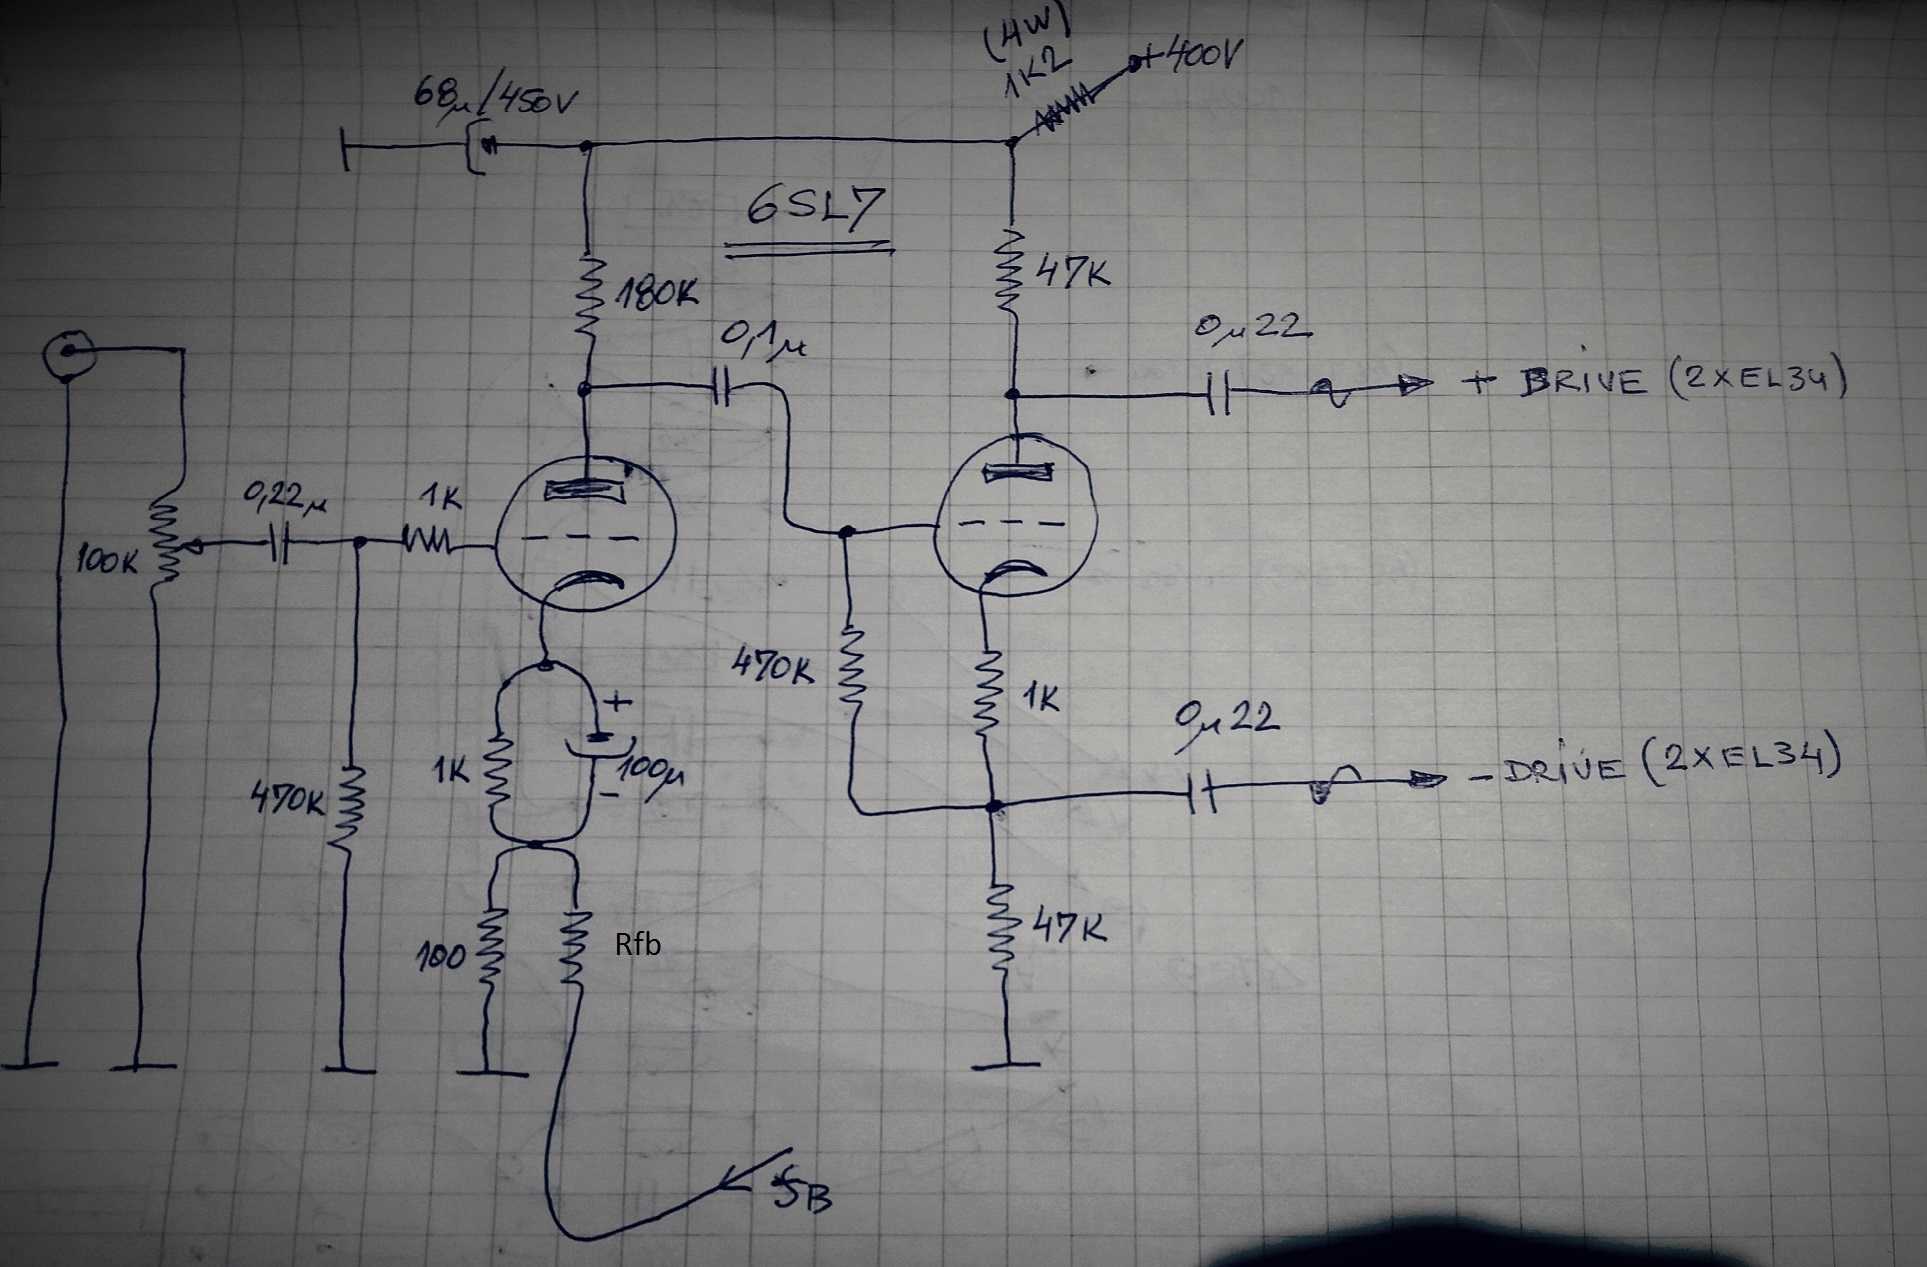 (4W)
1K2
+400V
68µ/450V
6SL7
180K
47K
0,1µ
0µ22
+ DRIVE (2XEL34)
0,22µ
1K
100K
470K
1K
0µ22
- DRIVE (2XEL34)
+
1K
100µ
-
470K
100
Rfb
47K
fB